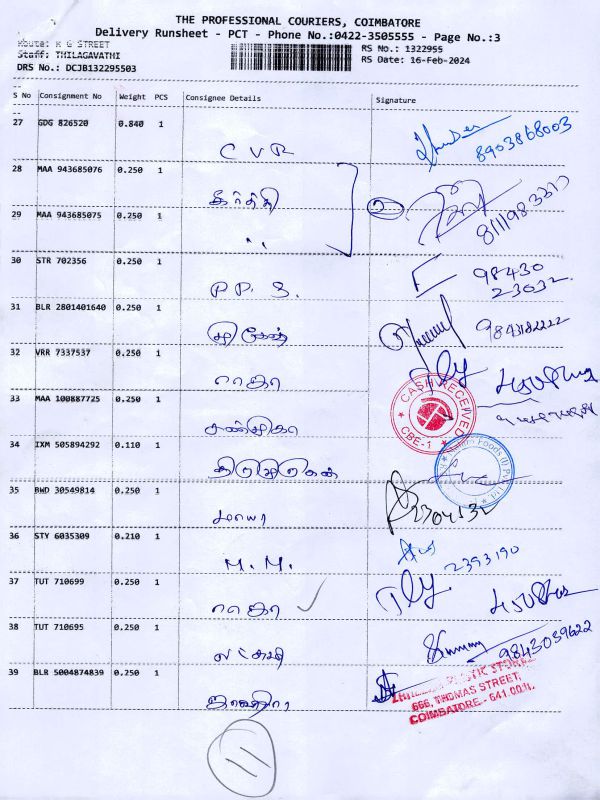 THE PROFESSIONAL COURIERS, COIMBATORE
Delivery Runsheet - PCT - Phone No.:0422-3505555 - Page No.:3
Route: R G STREET
Staff: THILAGAVATHI
DRS No.: DCJB132295503
RS No.: 1322955
RS Date: 16-Feb-2024
S No Consignment No Weight PCS Consignee Details Signature
27 GDG 826520 0.840 1
C V R 8903868003
28 MAA 943685076 0.250 1
கீர்த்தி
29 MAA 943685075 0.250 1
"
30 STR 702356 0.250 1
P. P. S. 98430
23032
31 BLR 2801401640 0.250 1
முகேஷ் 9843182222
32 VRR 7337537 0.250 1
ராஜா
33 MAA 100887725 0.250 1
CASH RECEIVED
CBE-1
சண்முகா
34 IXM 505894292 0.110 1
Foods (I) Pvt. Ltd.
திருமுருகன்
35 BWD 30549814 0.250 1
2304132
36 STY 6035309 0.210 1
M. M. 2393190
37 TUT 710699 0.250 1
ராஜா
38 TUT 710695 0.250 1
லட்சுமி 9843039622
39 BLR 5004874839 0.250 1
PLASTIC STORES
666, THOMAS STREET,
COIMBATORE - 641 001.
11